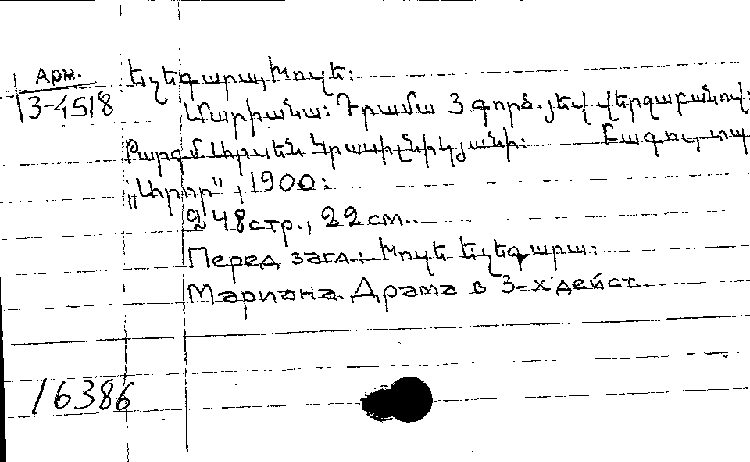 Арм.
3-4518
Եչեգարայ, Խոսե:
Մարիանա: Դրամա 3 գործ. յեվ վերջաբանով:
Թարգմ. Արսեն Կրասիլնիկյանի: Բագու, տպ
„Արոր", 1900:
248 стр., 22 см.
Перед загл.: Խոսե Եչեգարա:
Мариана. Драма в 3-х дейст.
16386